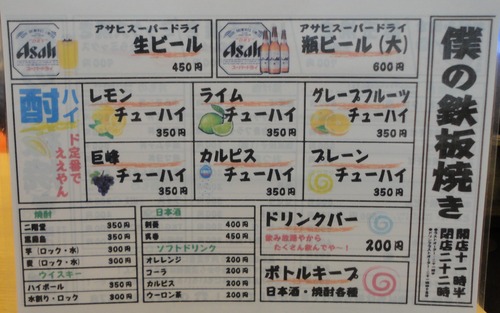 アサヒスーパードライ
生ビール
450円
Asahi
アサヒスーパードライ
瓶ビール(大)
600円
Asahi
僕の鉄板焼き
開店十一時半
閉店二十二時
酎ハイ
ド定番で
ええやん
レモン
チューハイ
350円
ライム
チューハイ
350円
グレープフルーツ
チューハイ
350円
巨峰
チューハイ
350円
カルピス
チューハイ
350円
プレーン
チューハイ
350円
焼酎
二階堂 350円
黒霧島 350円
芋(ロック・水) 300円
麦(ロック・水) 300円
ウイスキー
ハイボール 350円
水割り・ロック 300円
日本酒
剣菱 400円
呉春 450円
ソフトドリンク
オレンジ 200円
コーラ 200円
カルピス 200円
ウーロン茶 200円
ドリンクバー
飲み放題やから
たくさん飲んでや~!
200円
ボトルキープ
日本酒・焼酎各種